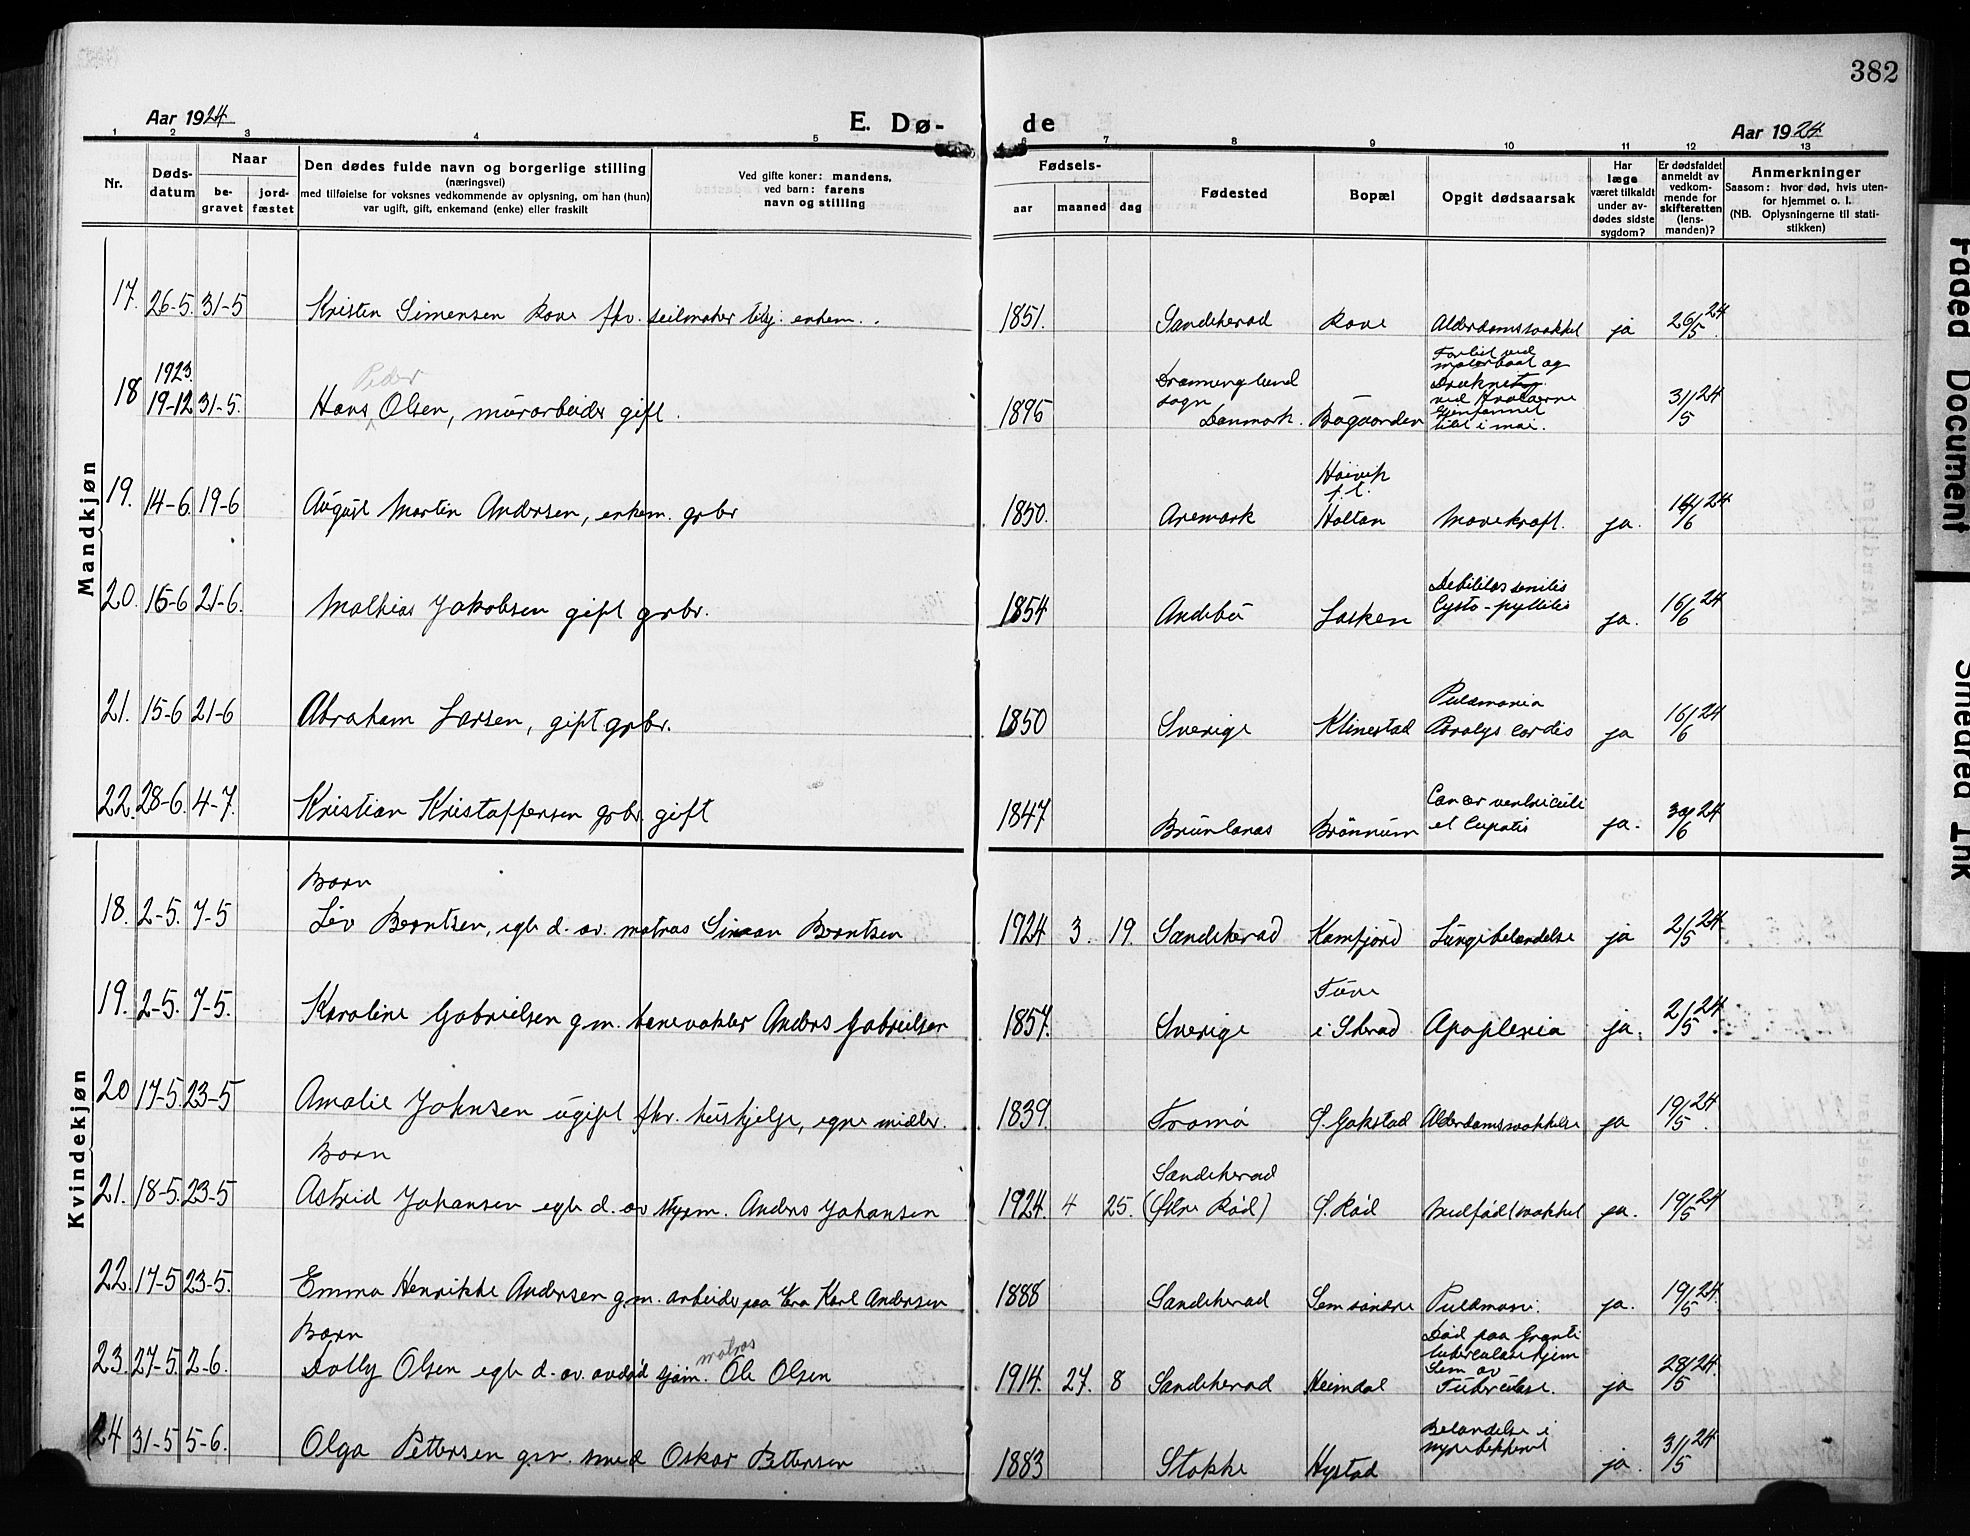 382
Aar 1924
E. Dø-
de
Aar 1924
1 2 3 4 5 6 7 8 9 10 11 12 13
Nr.
Døds-
datum
Naar
be-
gravet
jord-
fæstet
Den dødes fulde navn og borgerlige stilling
(næringsvei)
med tilføielse for voksnes vedkommende av oplysning, om han (hun)
var ugift, gift, enkemand (enke) eller fraskilt
Ved gifte koner: mandens,
ved barn: farens
navn og stilling
Fødsels-
aar maaned dag
Fødested
Bopæl
Opgit dødsaarsak
Har
læge
været tilkaldt
under av-
dødes sidste
sygdom?
Er dødsfaldet
anmeldt av
vedkom-
mende for
skifteretten
(lens-
manden)?
Anmerkninger
Saasom: hvor død, hvis uten-
for hjemmet o. l.
(NB. Oplysningerne til stati-
stikken)
Mandkjøn
17. 26-5. 31-5 Kristen Simensen Rove fhv. seilmaker enkem. 1851. Sandeherad Rove Alderdomssvakkel ja 26/5 24
18 1923. 19-12 31-5. Hans Peder Olsen, murarbeider gift. 1895 Dronninglund sogn Danmark. Bugaarden Forlist ved motorbaat og druknet ved Hvaløerne gjenfunnet i mai. 31/5 24
19. 14-6. 19-6 August Martin Andersen, enkem. grbr 1850. Aremark Høivik f.t. Holtan Mavekræft. ja. 24
20. 15-6 21-6. Mathias Jakobsen gift grbr. 1854 Andebu Lasken Debilitas senilis Cysto-pyllitis ja. 16/6 24
21. 15-6 21-6 Abraham Larsen, gift grbr. 1850 Sverige Klinestad Pulmonia Paralys cordis ja 16/6 24
22. 28-6. 4-7. Kristian Kristoffersen grbr. gift 1847 Brunlanes Brønnum Cancer ventriculi et ja. 30/6 24
Kvindekjøn
18. 2-5. 7-5 Barn Liv Berntsen, egte d. av. matros Simon Berntsen 1924 3. 19. Sandeherad Kamfjord Lungebetændelse ja 2/5 24
19. 2-5. 7-5. Karoline Gabrielsen g.m. banevokter Anders Gabrielsen 1857. Sverige i Sherad Apoplexia ja. 2/5 24.
20 17-5. 23-5 Amalie Johnsen ugift fhv. hushjelp, egne midler. 1839. Tromø Ø. Gokstad Alderdomssvakkelse ja 19/5 24.
21. 18-5. 23-5 Barn Astrid Johansen egte d. av styrm. Anders Johansen 1924. 4 25. Sandeherad (Øvre Rød) Ø. Rød Medfødt svakkel ja. 19/5 24
22. 17-5 23-5. Emma Henrikke Andersen g.m. arbeider paa Karl Andersen 1888 Sandeherad Sem søndre Pulmoni. ja. 19/5 24.
23. 27-5. 2-6. Barn Dolly Olsen egte d. av. avdød sjøm. matros Ole Olsen 1914. 27. 8 Sandeherad Heimdal Død paa Granli tuberculosehjem Sem av Tuberculose. ja 28/5 24.
24 31-5 5-6. Olga Pettersen g.m. smed Oskar Pettersen 1883 Stokke Hystad Betændelse i nyrebekkenet ja. 31/5 24
Faded Document
Smeared Ink